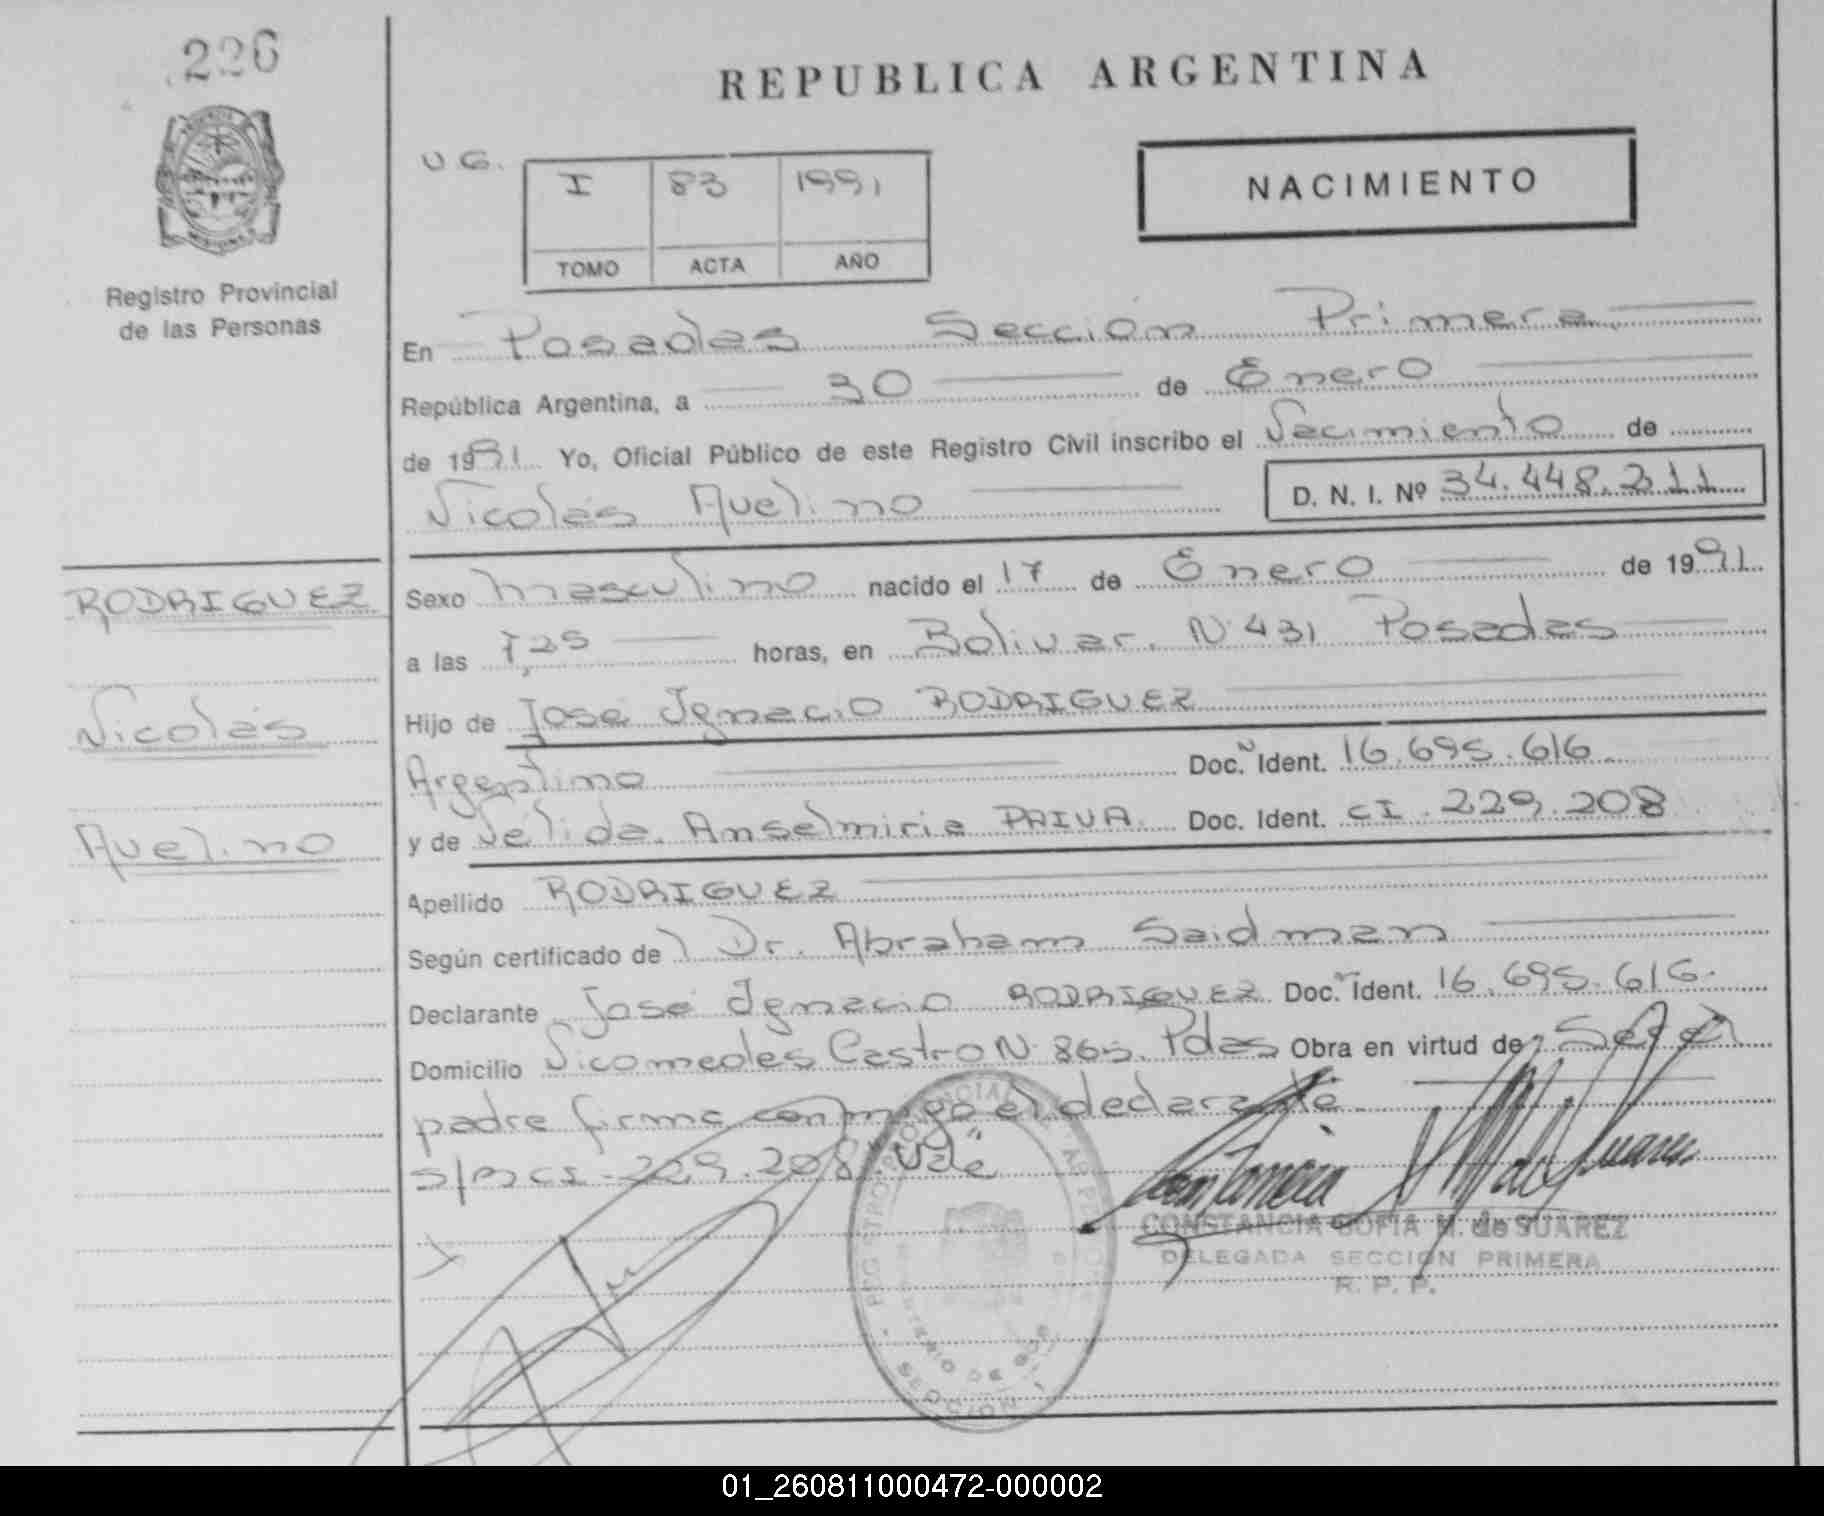 226
Registro Provincial
de las Personas
REPUBLICA ARGENTINA
U G. I 83 1991
TOMO ACTA AÑO
NACIMIENTO
En Posadas Sección Primera
República Argentina, a 30 de Enero
de 1991 Yo, Oficial Público de este Registro Civil inscribo el Nacimiento de
Nicolás Avelino D. N. I. Nº 34.448.211
RODRIGUEZ
Nicolás
Avelino
Sexo masculino nacido el 17 de Enero de 1991
a las 7,25 horas, en Bolivar. N 431 Posadas
Hijo de José Ignacio RODRIGUEZ
Argentino Doc. Ident. 16.695.616
y de Nélida Anselmiria PAIVA Doc. Ident. CI 229.208
Apellido RODRIGUEZ
Según certificado de Dr. Abraham Saidman
Declarante José Ignacio RODRIGUEZ Doc. Ident. 16.695.616.
Domicilio Nicomedes Castro N 865. Pdas Obra en virtud de Ser el
padre firma conmigo el declarante
CI 229.208 Vale
CONSTANCIA SOFIA M. de SUAREZ
DELEGADA SECCION PRIMERA
R. P. P.
01_260811000472-000002